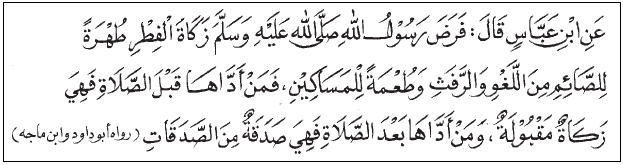 عَنِ ابْنِ عَبَّاسٍ قَالَ: فَرَضَ رَسُوْلُ اللهِ صَلَّى اللهُ عَلَيْهِ وَسَلَّمَ زَكَاةَ الْفِطْرِ طُهْرَةً
لِلصَّائِمِ مِنَ اللَّغْوِ وَالرَّفَثِ وَطُعْمَةً لِلْمَسَاكِيْنِ، فَمَنْ أَدَّاهَا قَبْلَ الصَّلَاةِ فَهِيَ
زَكَاةٌ مَقْبُوْلَةٌ، وَمَنْ أَدَّاهَا بَعْدَ الصَّلَاةِ فَهِيَ صَدَقَةٌ مِنَ الصَّدَقَاتِ (رواه أبو داود وابن ماجه)